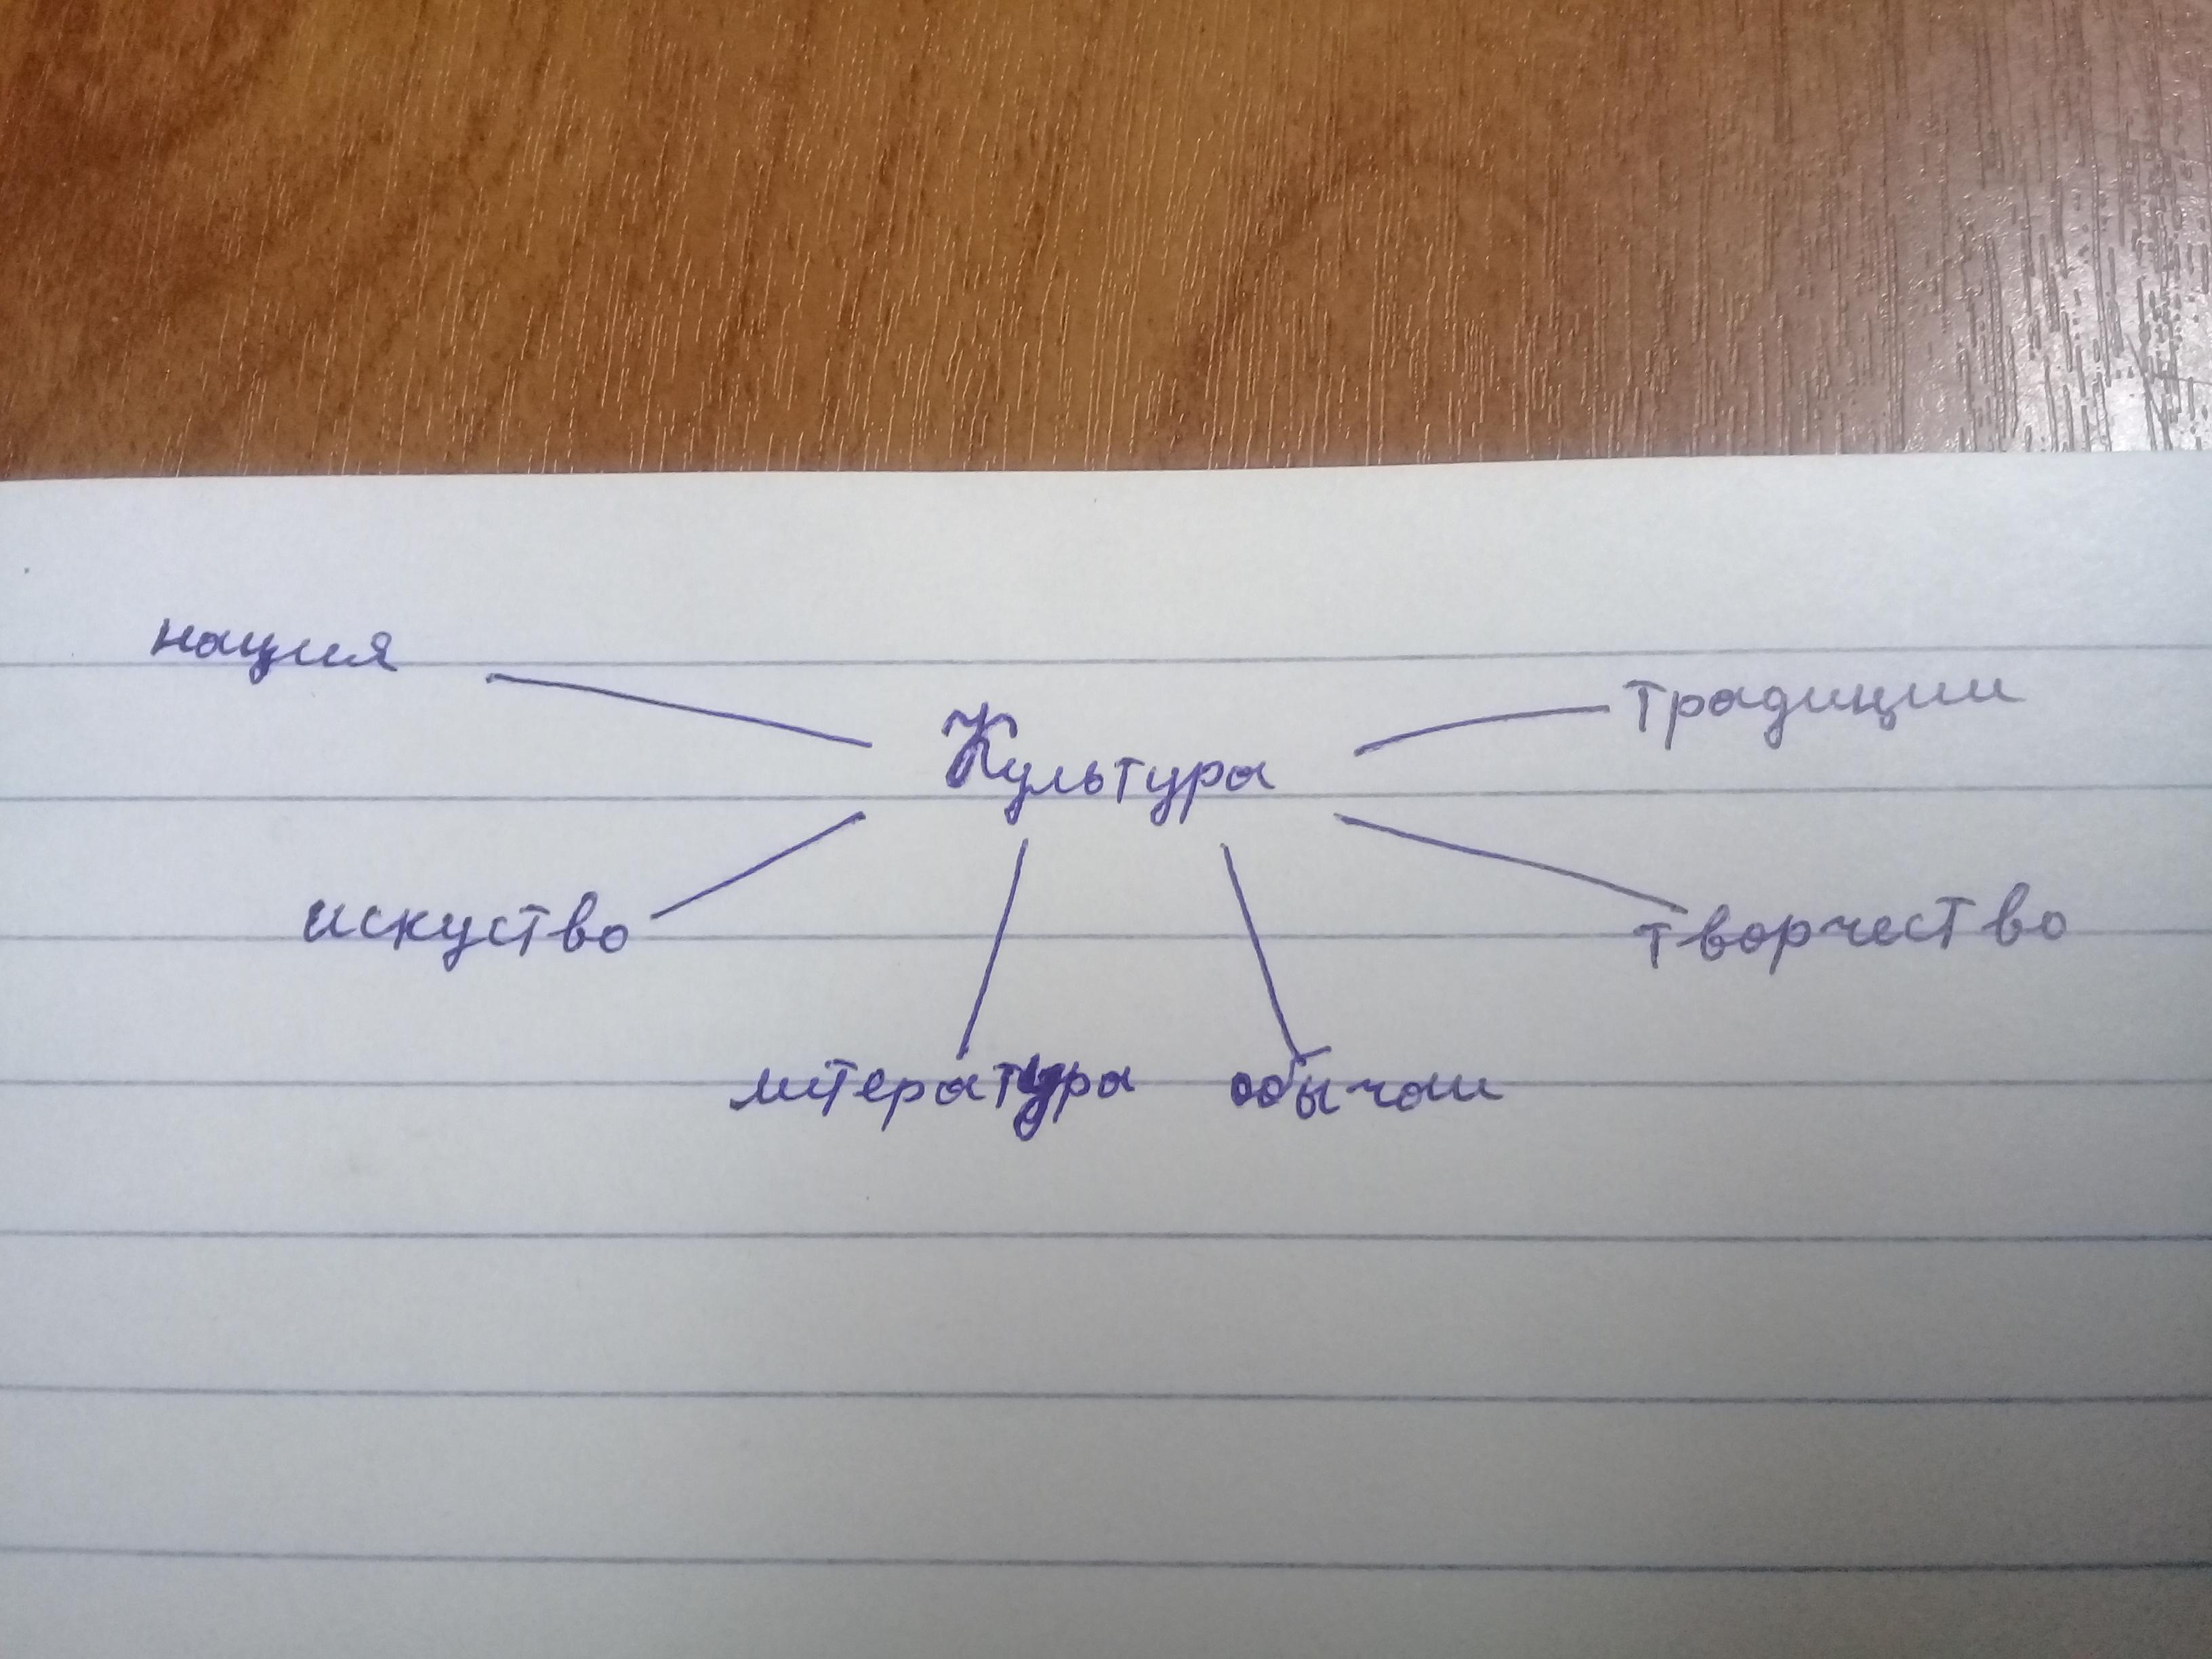 нация
традиции
Культура
искуство
творчество
литература
обычаи